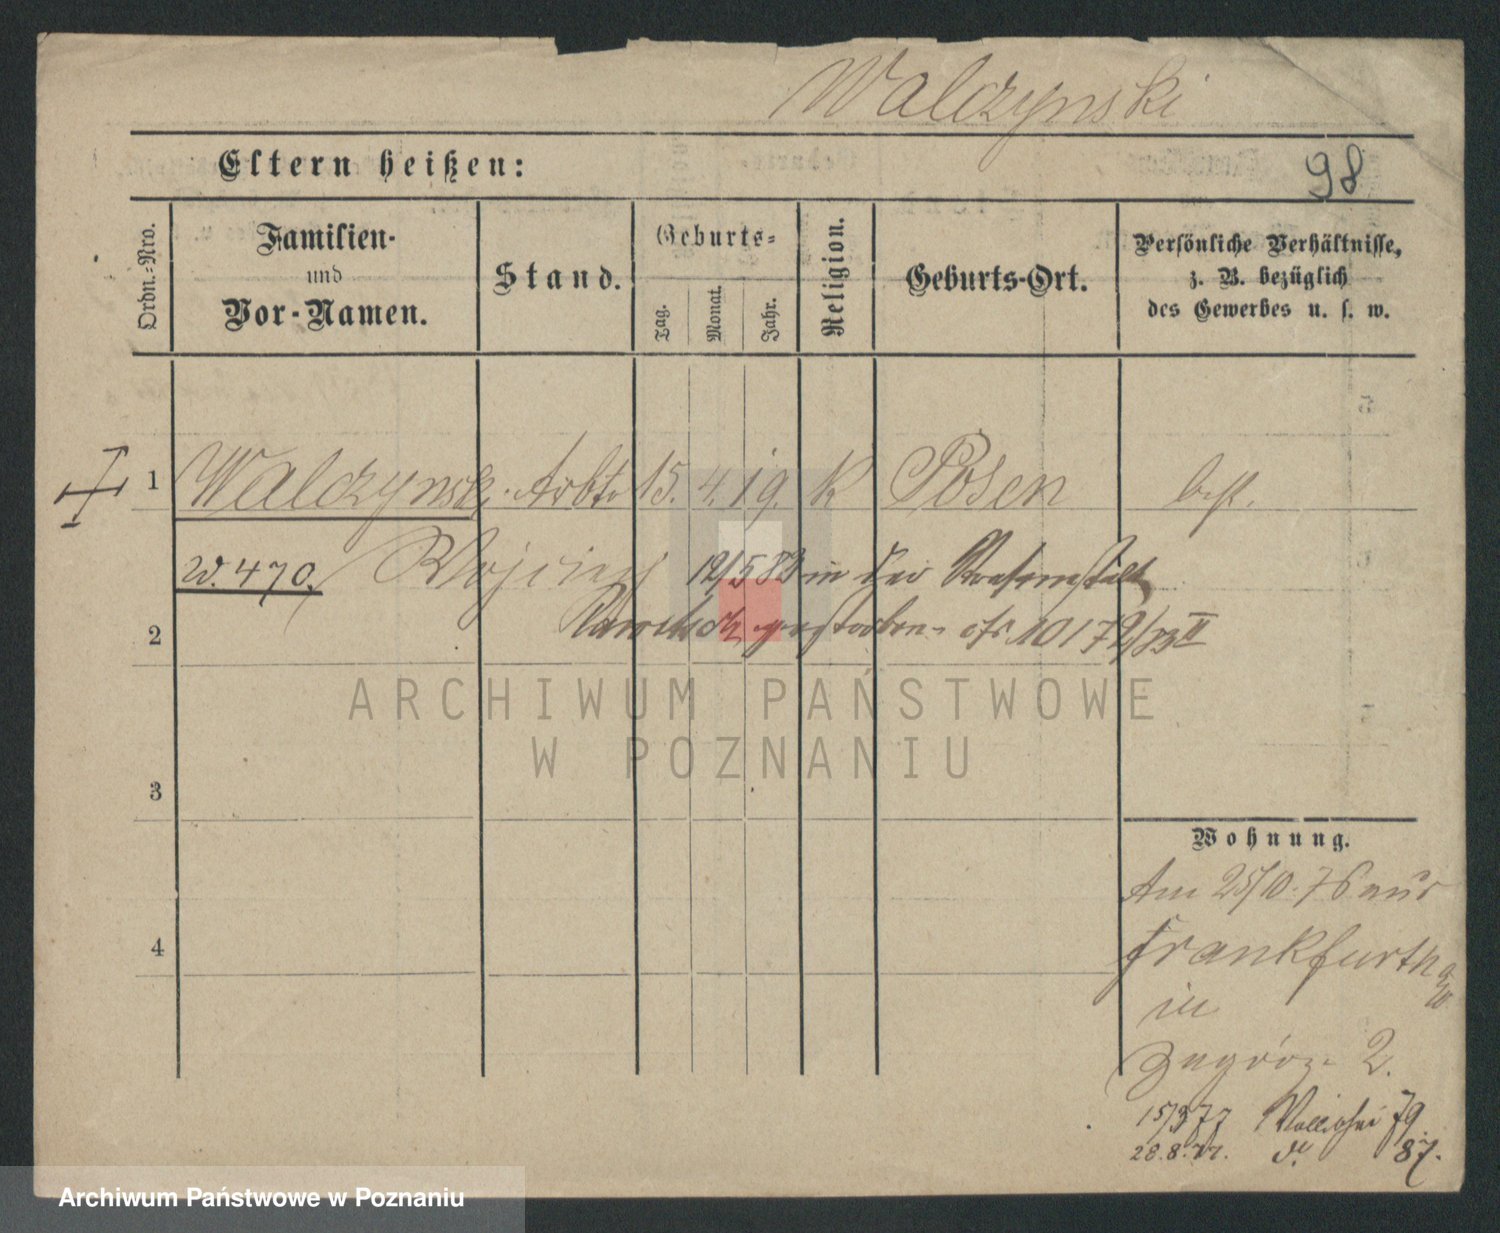 Walczynski
Eltern heißen:
98
Ordn.-Nro.
Familien-
und
Vor-Namen.
Stand.
Geburts-
Tag.
Monat.
Jahr.
Religion.
Geburts-Ort.
Persönliche Verhältnisse,
z. B. bezüglich
des Gewerbes u. s. w.
1 Walczynski Arbtr 15. 4. 19. K Posen best.
W. 470. Wojciech 12/5 83 in der
2 gestorben
ARCHIWUM PAŃSTWOWE
W POZNANIU
3
4
Wohnung.
Am 25/10. 76 aus
Frankfurth a/O
in
Zagórze 2.
15/3 77 Wallischei 79
28.8.77. do 87.
Archiwum Państwowe w Poznaniu